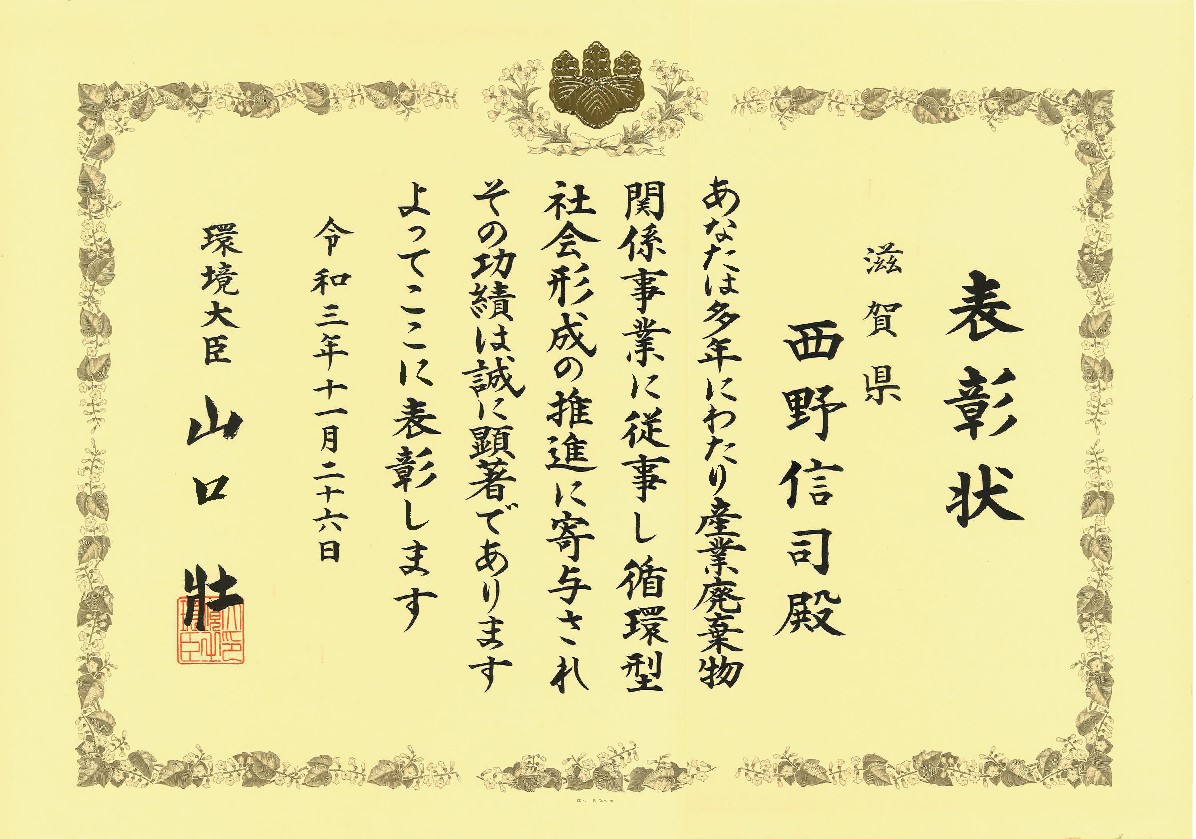 表彰状
滋賀県
西野信司殿
あなたは多年にわたり産業廃棄物
関係事業に従事し循環型
社会形成の推進に寄与され
その功績は誠に顕著であります
よってここに表彰します
令和三年十一月二十六日
環境大臣 山口 壯